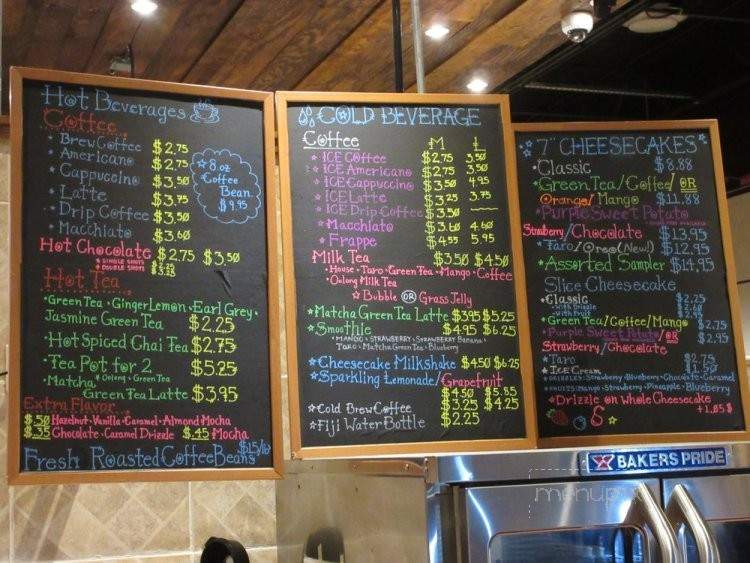 Hot Beverages
Coffee
Brew Coffee $2.75
Americano $2.75
Cappuccino $3.50
Latte $3.75
Drip Coffee $3.50
Macchiato $3.60
☆ 8 oz
Coffee
Bean
$9.95
Hot Chocolate $2.75 $3.50
Single Shots
Double Shots
Hot Tea
Green Tea · Ginger Lemon · Earl Grey ·
Jasmine Green Tea $2.25
Hot Spiced Chai Tea $2.75
Tea Pot for 2 $5.25
Oolong · Green Tea
Matcha
Green Tea Latte $3.95
Extra Flavor
$.50 Hazelnut · Vanilla · Caramel · Almond Mocha
$.35 Chocolate · Caramel Drizzle $.45 Mocha
Fresh Roasted Coffee Beans $15/lb
COLD BEVERAGE
Coffee M L
ICE Coffee $2.75 3.50
ICE Americano $2.75 3.50
ICE Cappuccino $3.50 4.95
ICE Latte $3.25 3.75
ICE Drip Coffee $3.50
Macchiato $3.60 4.60
Frappe $4.55 5.95
Milk Tea $3.50 $4.50
House · Taro · Green Tea · Mango · Coffee
Oolong Milk Tea
☆ Bubble OR Grass Jelly
☆ Matcha Green Tea Latte $3.95 $5.25
☆ Smoothie $4.95 $6.25
Mango · Strawberry · Strawberry Banana ·
Taro · Matcha Green Tea · Blueberry
☆ Cheesecake Milkshake $4.50 $6.25
☆ Sparkling Lemonade/Grapefruit
$4.50 $5.85
☆ Cold Brew Coffee $3.25 $4.25
☆ Fiji Water Bottle $2.25
7" CHEESECAKES
Classic $8.88
Green Tea/Coffee/OR
Orange/Mango $11.88
Purple Sweet Potato
Strawberry/Chocolate $13.95
Taro/Oreo (New!) $12.95
Assorted Sampler $14.95
Slice Cheesecake
Classic $2.25
with Drizzle
with Fruit
Green Tea/Coffee/Mango $2.75
Purple Sweet Potato/OR $2.95
Strawberry/Chocolate
Taro $2.75
ICE Cream $1.50
Drizzles: Strawberry · Blueberry · Chocolate · Caramel
Fruits: Mango · Strawberry · Pineapple · Blueberry
Drizzle on whole Cheesecake
+1.05 $
BAKERS PRIDE